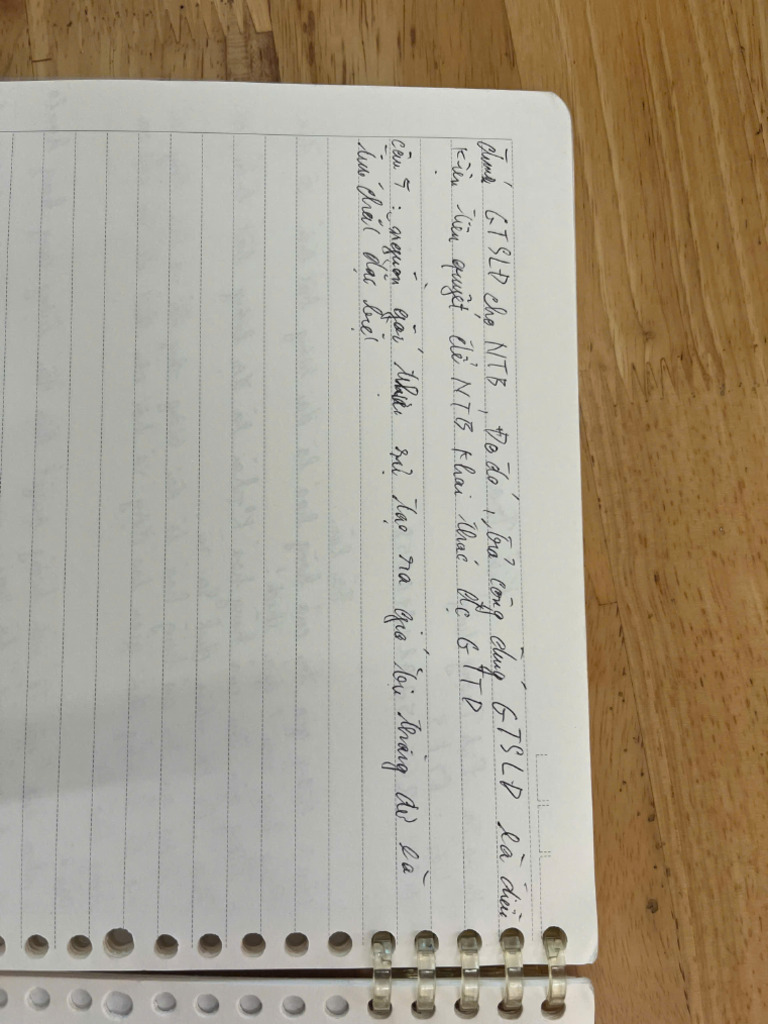 đúng GTSLĐ cho NTB, Do đó, trả công đúng GTSLĐ là điều
kiện tiên quyết để NTB khai thác đc GTTD
câu 7: nguồn gốc thực sự tạo ra giá trị thặng dư là
tính chất đặc biệt